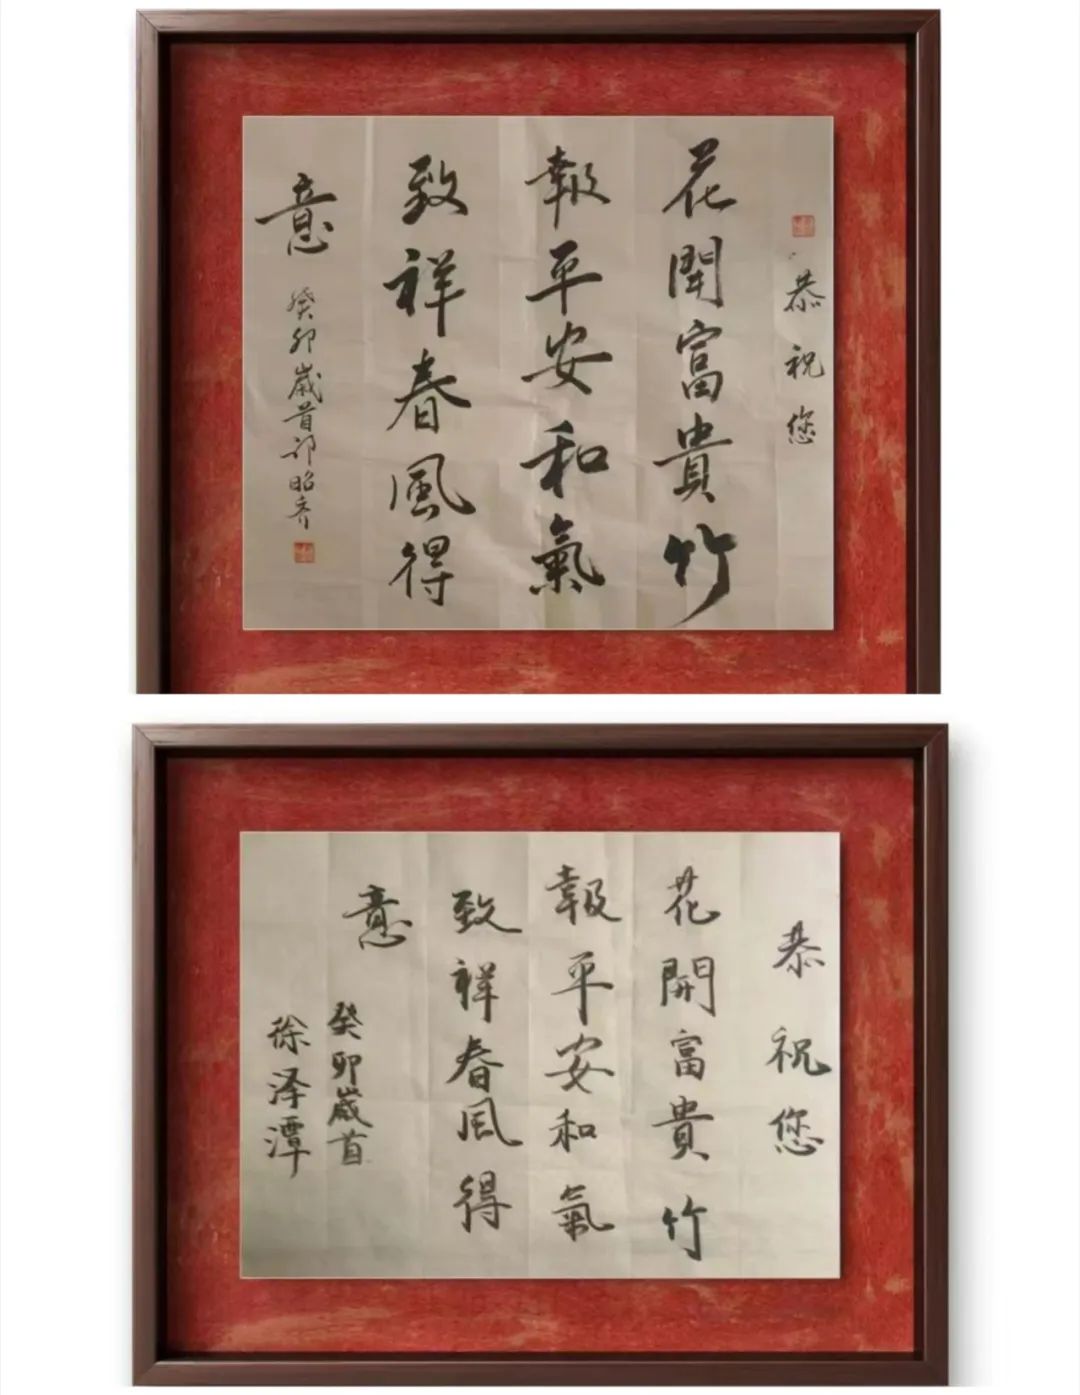 恭祝您
花開富貴竹
報平安和氣
致祥春風得
意
癸卯歲首邵昭秀
恭祝您
花開富貴竹
報平安和氣
致祥春风得
意
癸卯歲首
徐泽潭